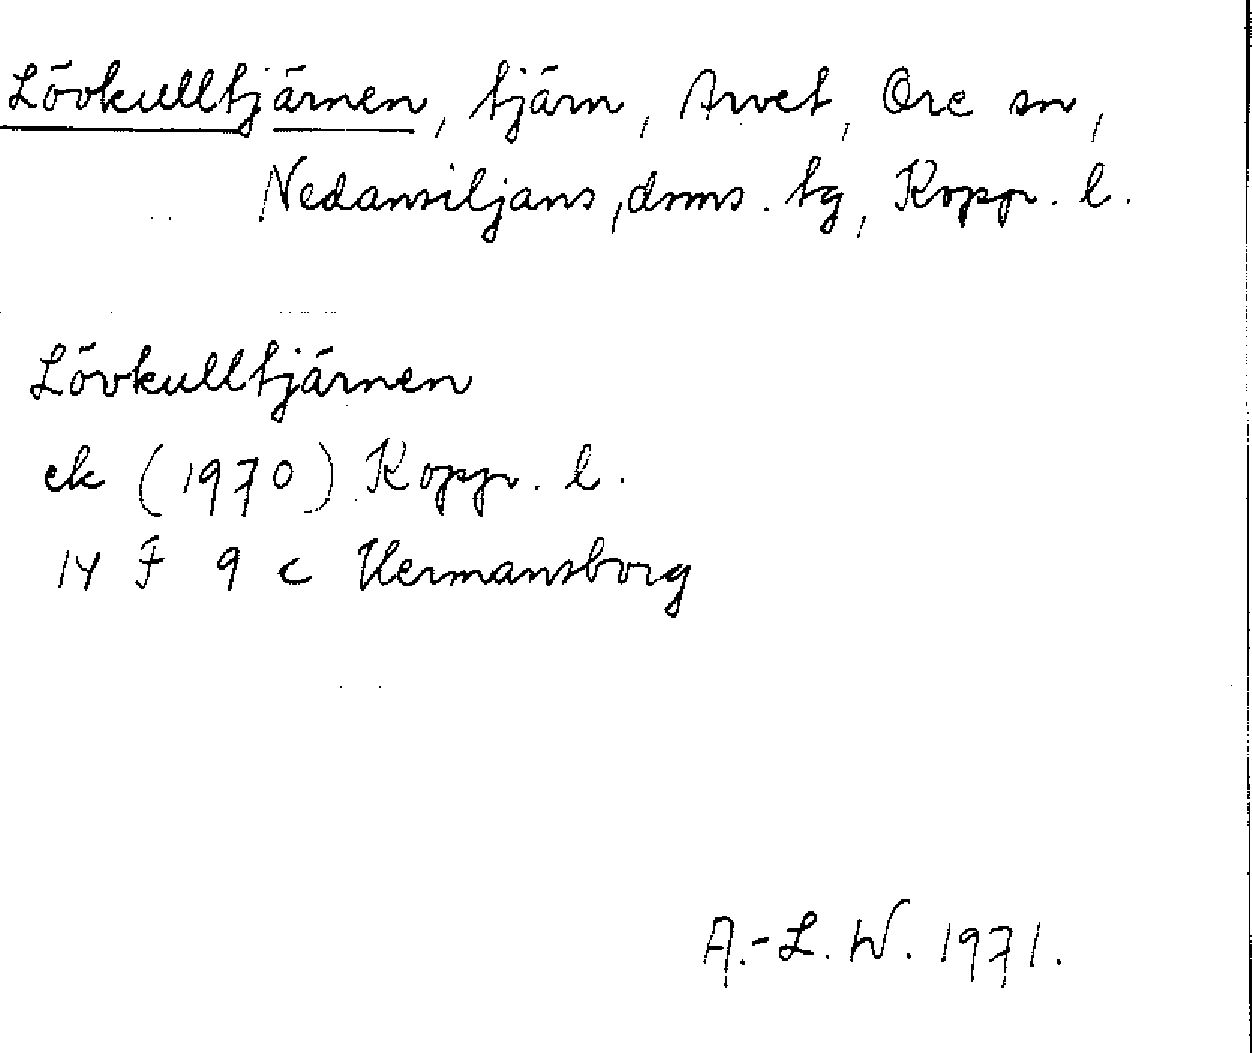 Lövkulltjärnen, tjärn, Arvet, Ore sn,
Nedansiljans, doms. tg, Koppr. l.
Lövkulltjärnen
ek (1970) Koppr. l.
14 F 9 c Hermansborg
A.-L. W. 1971.